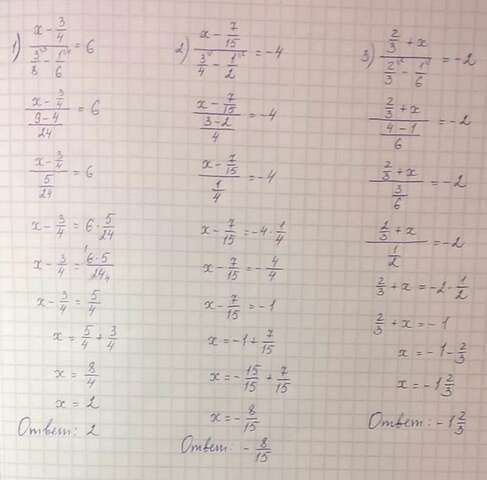 1) (x - 3/4) / (3/8 - 1/6) = 6
(x - 3/4) / ((9 - 4)/24) = 6
(x - 3/4) / (5/24) = 6
x - 3/4 = 6 · 5/24
x - 3/4 = (6 · 5)/24
x - 3/4 = 5/4
x = 5/4 + 3/4
x = 8/4
x = 2
Ответ: 2
2) (x - 7/15) / (3/4 - 1/2) = -4
(x - 7/15) / ((3 - 2)/4) = -4
(x - 7/15) / (1/4) = -4
x - 7/15 = -4 · 1/4
x - 7/15 = -4/4
x - 7/15 = -1
x = -1 + 7/15
x = -15/15 + 7/15
x = -8/15
Ответ: -8/15
3) (2/3 + x) / (2/3 - 1/6) = -2
(2/3 + x) / ((4 - 1)/6) = -2
(2/3 + x) / (3/6) = -2
(2/3 + x) / (1/2) = -2
2/3 + x = -2 · 1/2
2/3 + x = -1
x = -1 - 2/3
x = -1 2/3
Ответ: -1 2/3